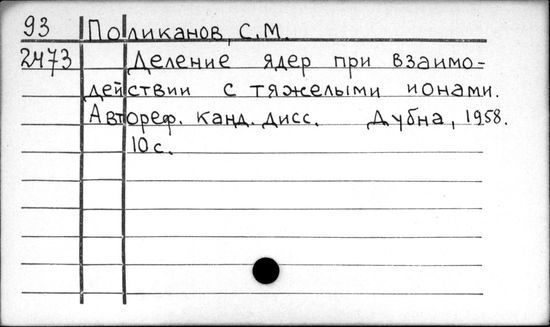 93 Поликанов, С.М.
2473 Деление ядер при взаимо-
действии с тяжелыми ионами.
Автореф. канд. дисс. Дубна, 1958.
10 с.